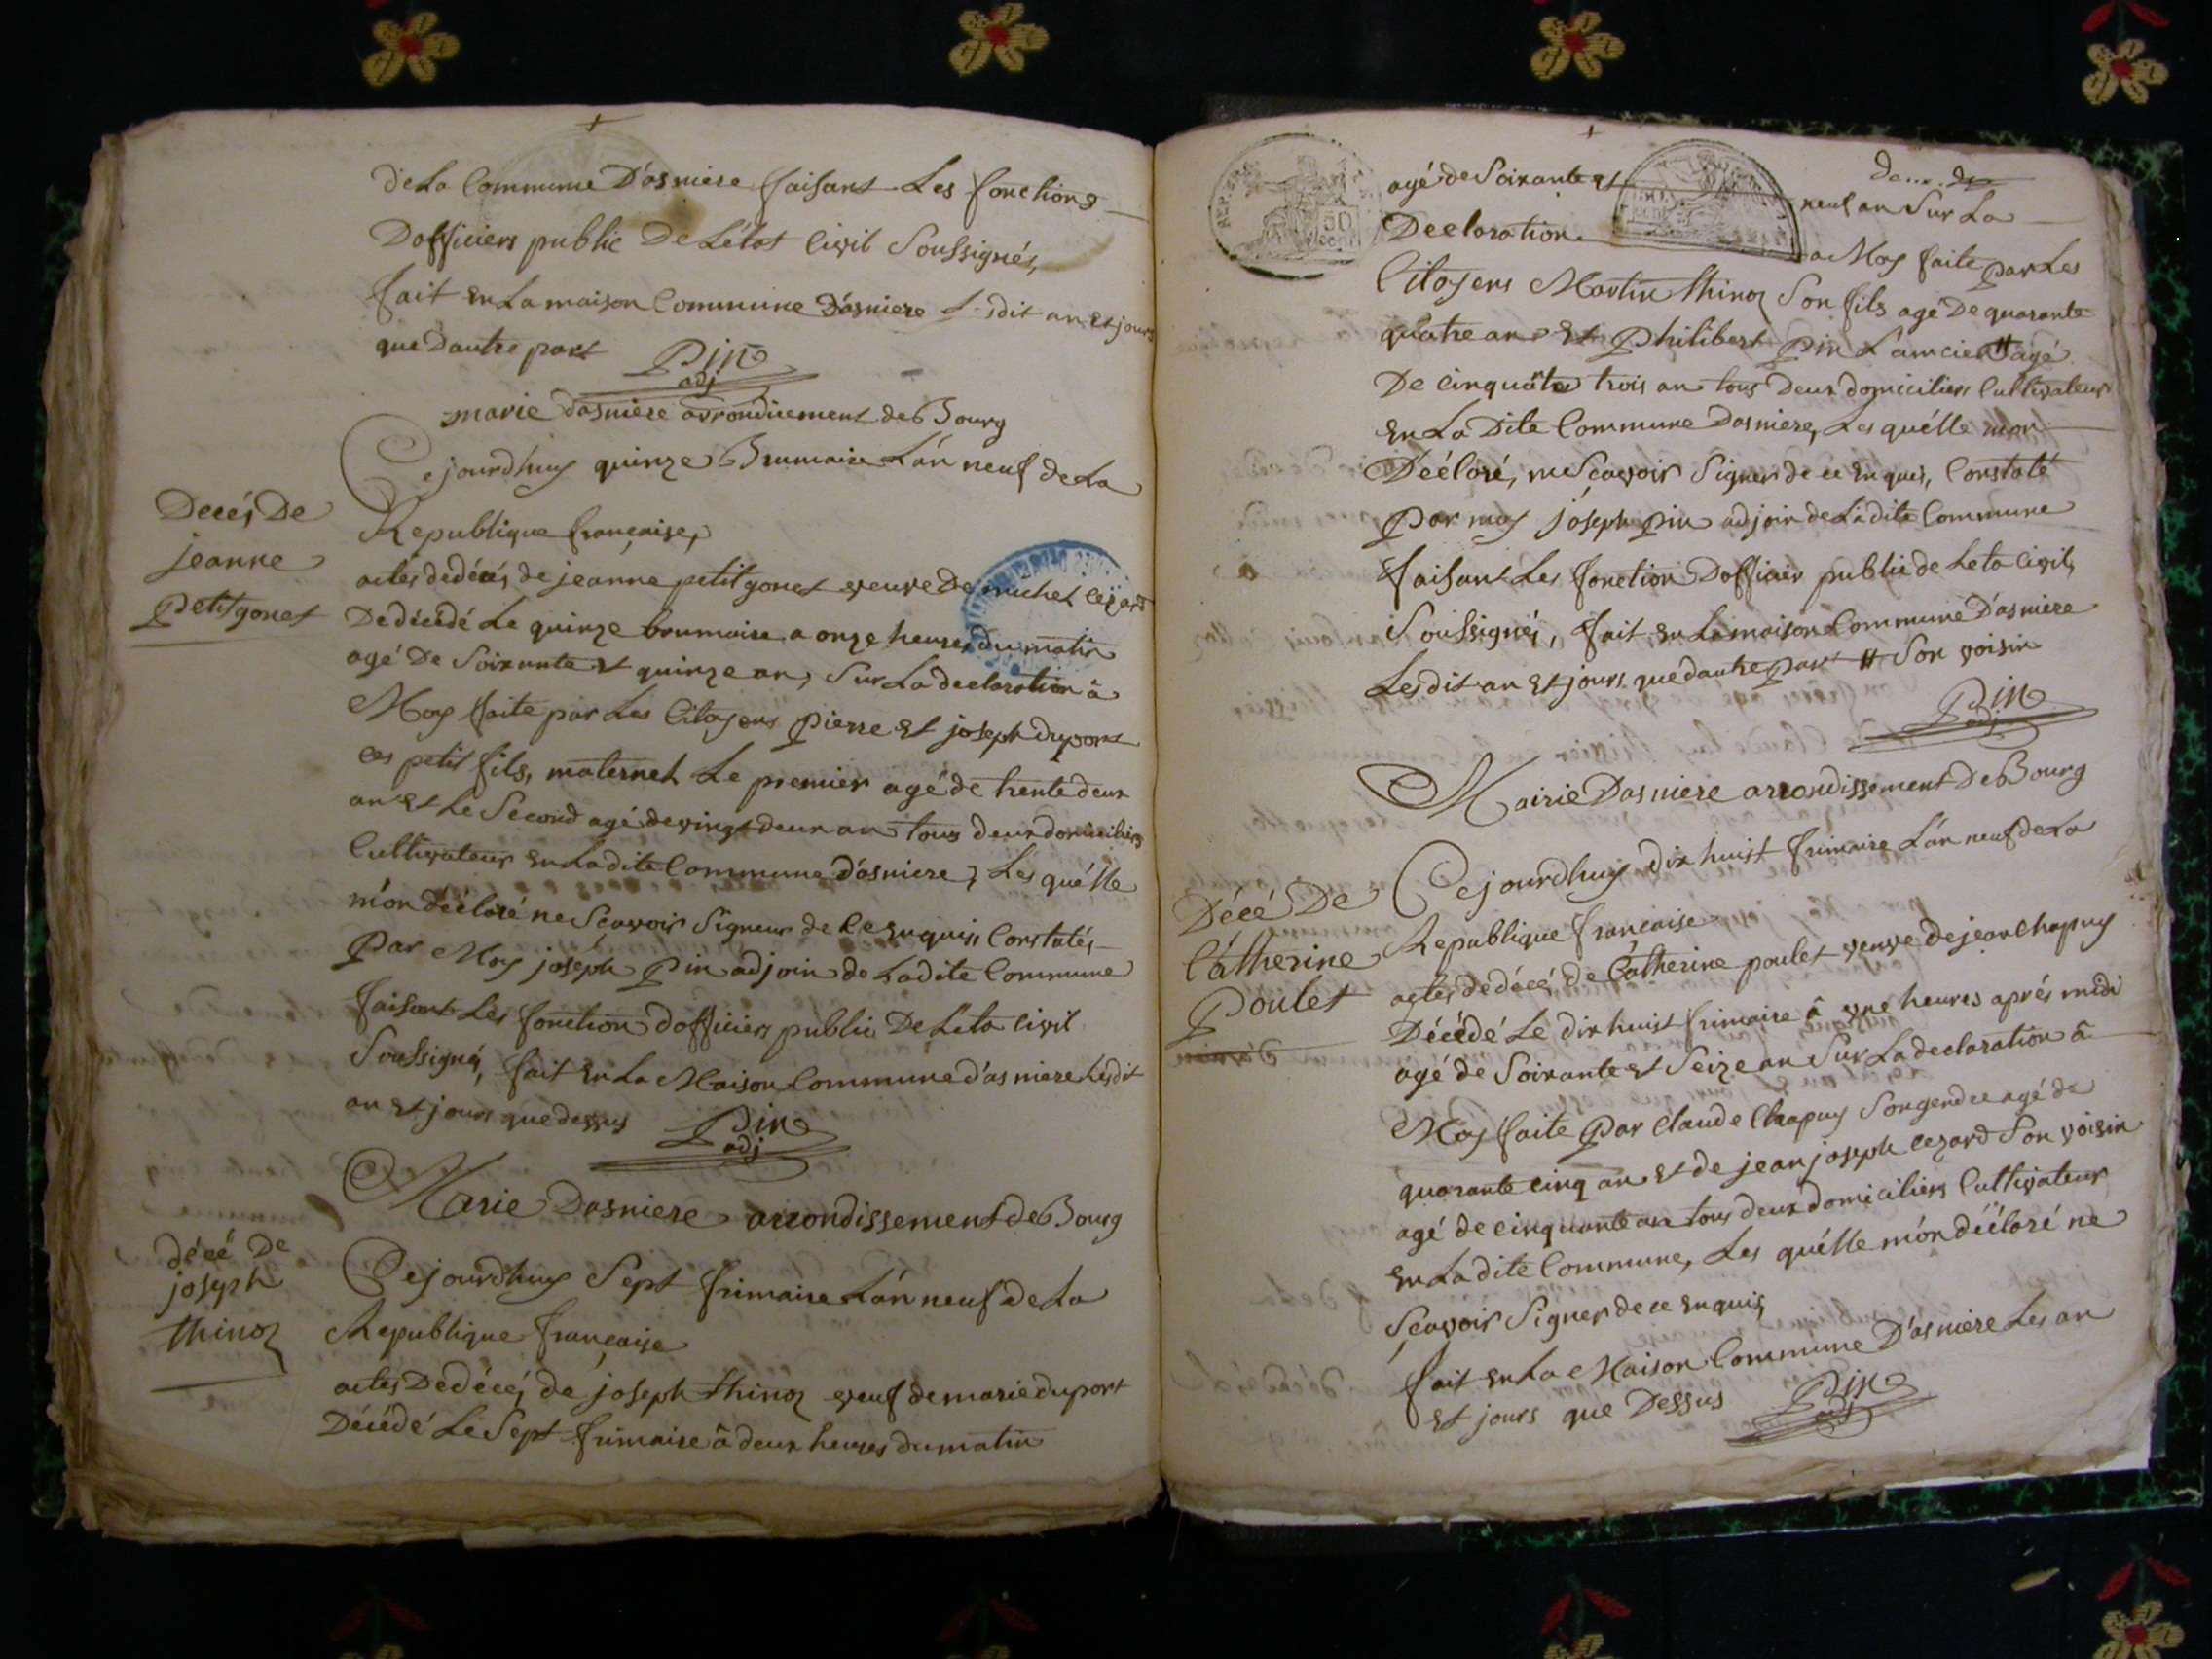 de La Commune D'asniere faisant Les fonctions
Dofficiers public De Létat Civil Soussignés,
fait en La maison Commune D'asniere Lesdit an et jours
que dautre part Pin
adj
marie dasniere arrondicement de Bourg
Cejourdhuy quinze Brumaire Lán neuf de La
Republique française,
Decés De
jeanne
petitgonet
actes de décés de jeanne petitgonet veuve De michel cezard
De décédé Le quinze brumaire a onze heures du matin
agé De Soixante et quinze an, Sur La declaration â
Moy faite par Les Citoyens pierre et joseph dupont
ces petit fils, maternel Le premier agé de trente deux
an et Le Second agé de vingt deux an tous deux domiciliers
Cultivateur en La dite Commune D'asniere, Les quélle
món déeloré ne Scavoir Signeur de Ce enquis, Constatés
par Moy joseph pin adjoin de Ladite Commune
faisant Les fonction dofficiers public De Léta Civil
Soussigné, fait en La Maison Commune d'asniere Lesdit
an et jours que dessus Pin
adj
Marie Dasniere arrondissement de Bourg
décé De
joseph
thinoz
Cejourdhuy Sept frimaire Lán neuf de La
Republique française
actes De décés de joseph thinoz veuf de marie duport
Décédé Le Sept frimaire â deux heures du matin
REP.FRA
50
cent
agé de Soixante et neuf an Sur La
Declaration a Moy faite par Les
Citoyens Martin thinoz Son fils agé De quarante
quatre an et philibert pin L'ancien # agé
De cinquánte trois an tous Deux domiciliers Cultivateur
en La Dite Commune Dasniere, Les quélle mon
Décloré, ne Scavoir Signer de ce enquis, Constaté
par moy joseph pin adjoin de Ladite Commune
faisant Les fonction Dofficier public de Leta Civil,
Soussignés, fait en La maison Commune D'asniere
Les dit an et jours que dautre part # Son voisin
Pin
adj
Mairie Dasniere arrondissement De Bourg
Décé De
Cátherine
poulet
Cejourdhuy dix huist frimaire Lán neuf de La
Republique francaise
actes de décé de Cátherine poulet veuve de jean Chapuy
Décédé Le dix huist frimaire â une heures aprés midi
agé de Soixante et Seize an Sur La declaration â
Moy faite par Claude Chapuy Son gendre agé de
quarante cinq an et de jean joseph cezard Son voisin
agé de cinquante an tous deux domiciliers Cultivateur
en La dite Commune, Les quélle món décloré ne
Scavoir Signer de ce enquis,
fait en La Maison Commune D'asniere Les an
et jours que Dessus Pin
adj